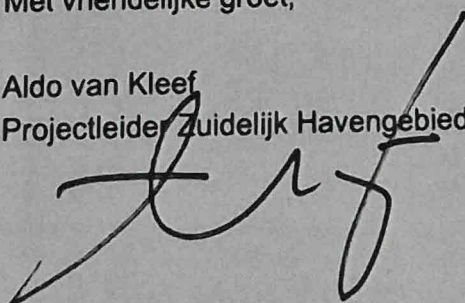 Met vriendelijke groet,
Aldo van Kleef
Projectleider Zuidelijk Havengebied